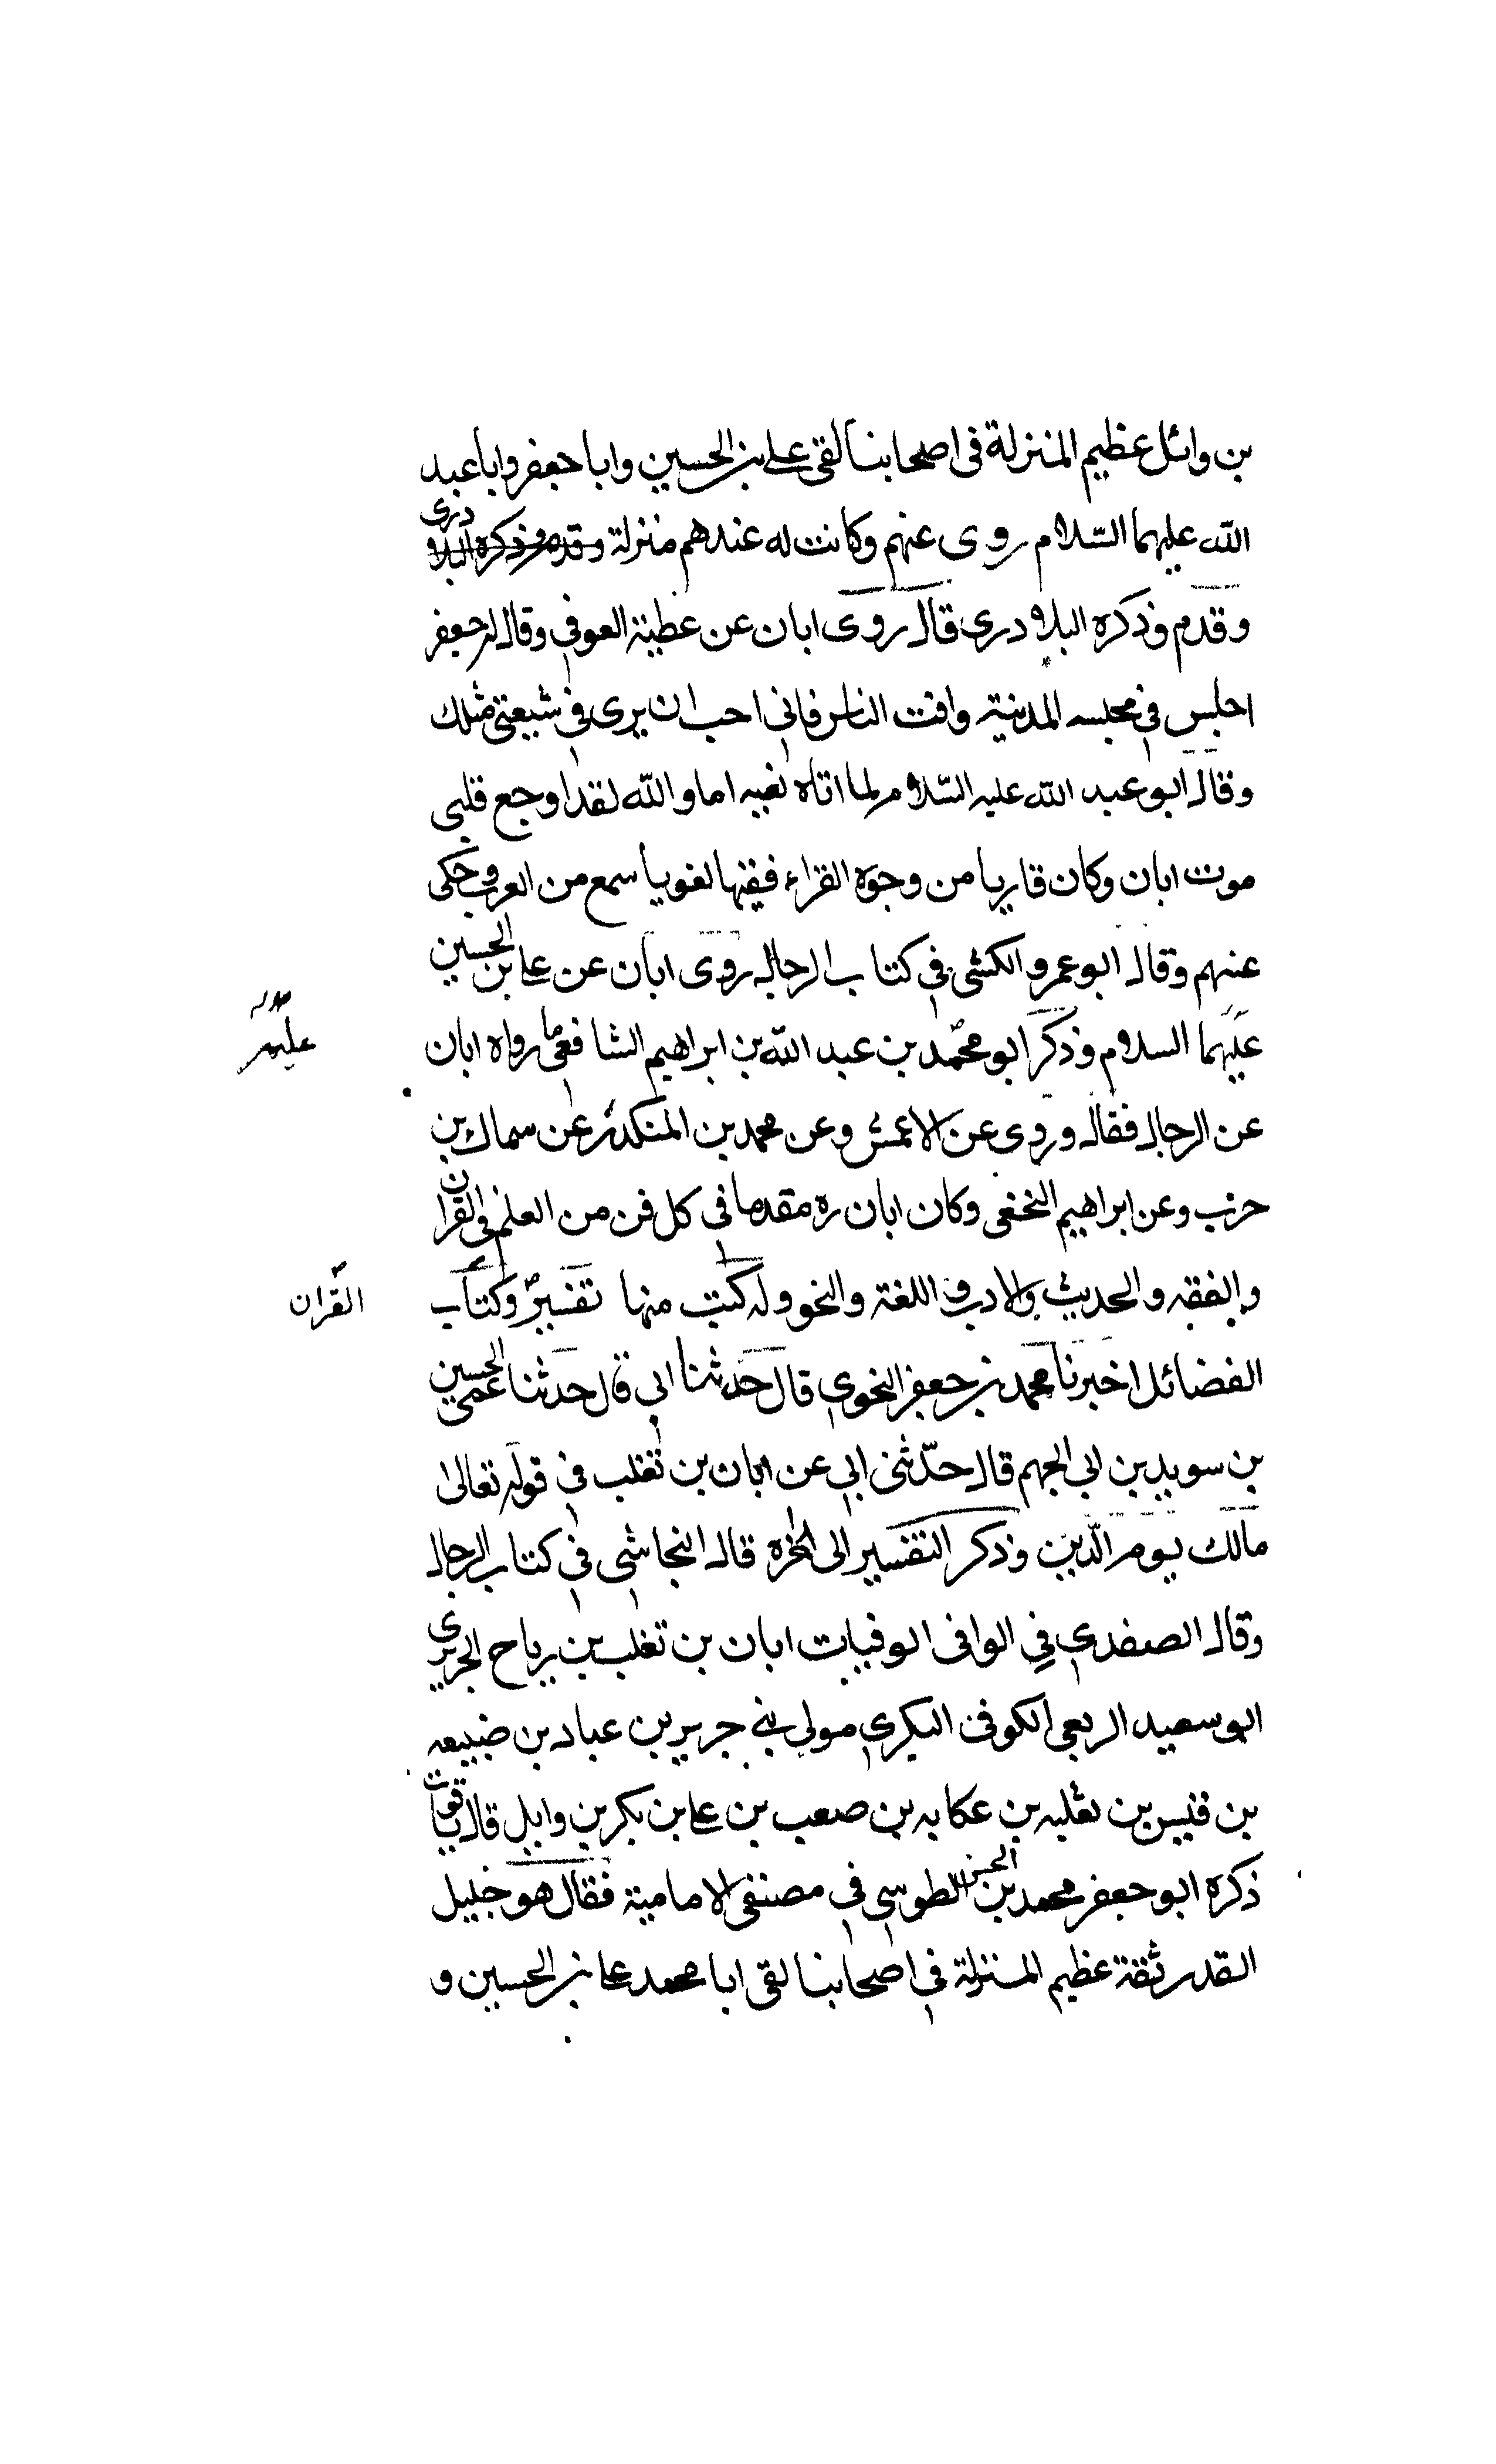 بن وائل عظيم المنزلة فى اصحابنا لقى على بن الحسين وابا جعفر وابا عبد
الله عليهما السّلام روى عنهم وكانت له عندهم منزلة وقدم وذكره البلاذرى
وقدم وذكره البلاذرى قال روى ابان عن عطية العوفى وقال له جعفر
اجلس فى مجلسه المدينة وافت الناس فانى احب ان يرى فى شيعتى مثلك
وقال ابو عبد الله عليه السّلام لما اتاه نعيه اما والله لقد اوجع قلبى
موت ابان وكان قاريا من وجوه القراء فقيها لغويا سمع من العرب وحكى
عنهم وقال ابو عمرو الكشى فى كتاب الرجال روى ابان عن على بن الحسين
عليهما السلام وذكر ابو محمّد بن عبد الله بن ابراهيم الشافعى ما رواه ابان
عليهم
عن الرجال فقال وروى عن الاعمش وعن محمد بن المنكدر عن سماك بن
حرب وعن ابراهيم النخعى وكان ابان ره مقدما فى كل فن من العلم فى القران
والفقه والحديث والادب واللغة والنحو وله كتب منها تفسير وكتاب
القران
الفضائل اخبرنا محمد بن جعفر النحوى قال حدثنا ابى قال حدثنا عمى الحسين
بن سويد بن ابى الجهم قال حدّثنى ابى عن ابان بن تغلب فى قوله تعالى
مالك يوم الدّين وذكر التفسير الى اخره قال النجاشى فى كتاب الرجال
وقال الصفدى فى الوافى الوفيات ابان بن تغلب بن رياح الجريرى
ابو سعيد الربعى الكوفى البكرى مولى بنى جرير بن عباد بن ضبيعه
بن قيس بن ثعلبه بن عكابه بن صعب بن على بن بكر بن وايل قال ياقوت
ذكره ابو جعفر محمد بن الحسن الطوسى فى مصنفى الامامية فقال هو جليل
القدر ثقة عظيم المنزلة فى اصحابنا لقى ابا محمد على بن الحسين و